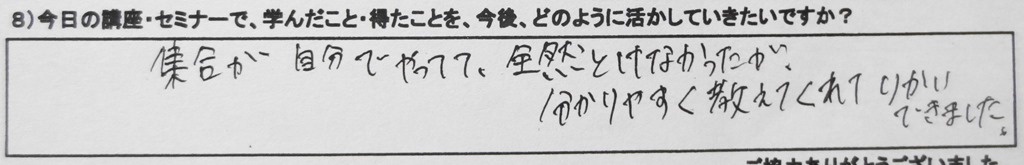 8)今日の講座・セミナーで、学んだこと・得たことを、今後、どのように活かしていきたいですか？
集合が 自分でやってて、全然とけなかったが、
分かりやすく教えてくれて りかい
できました。